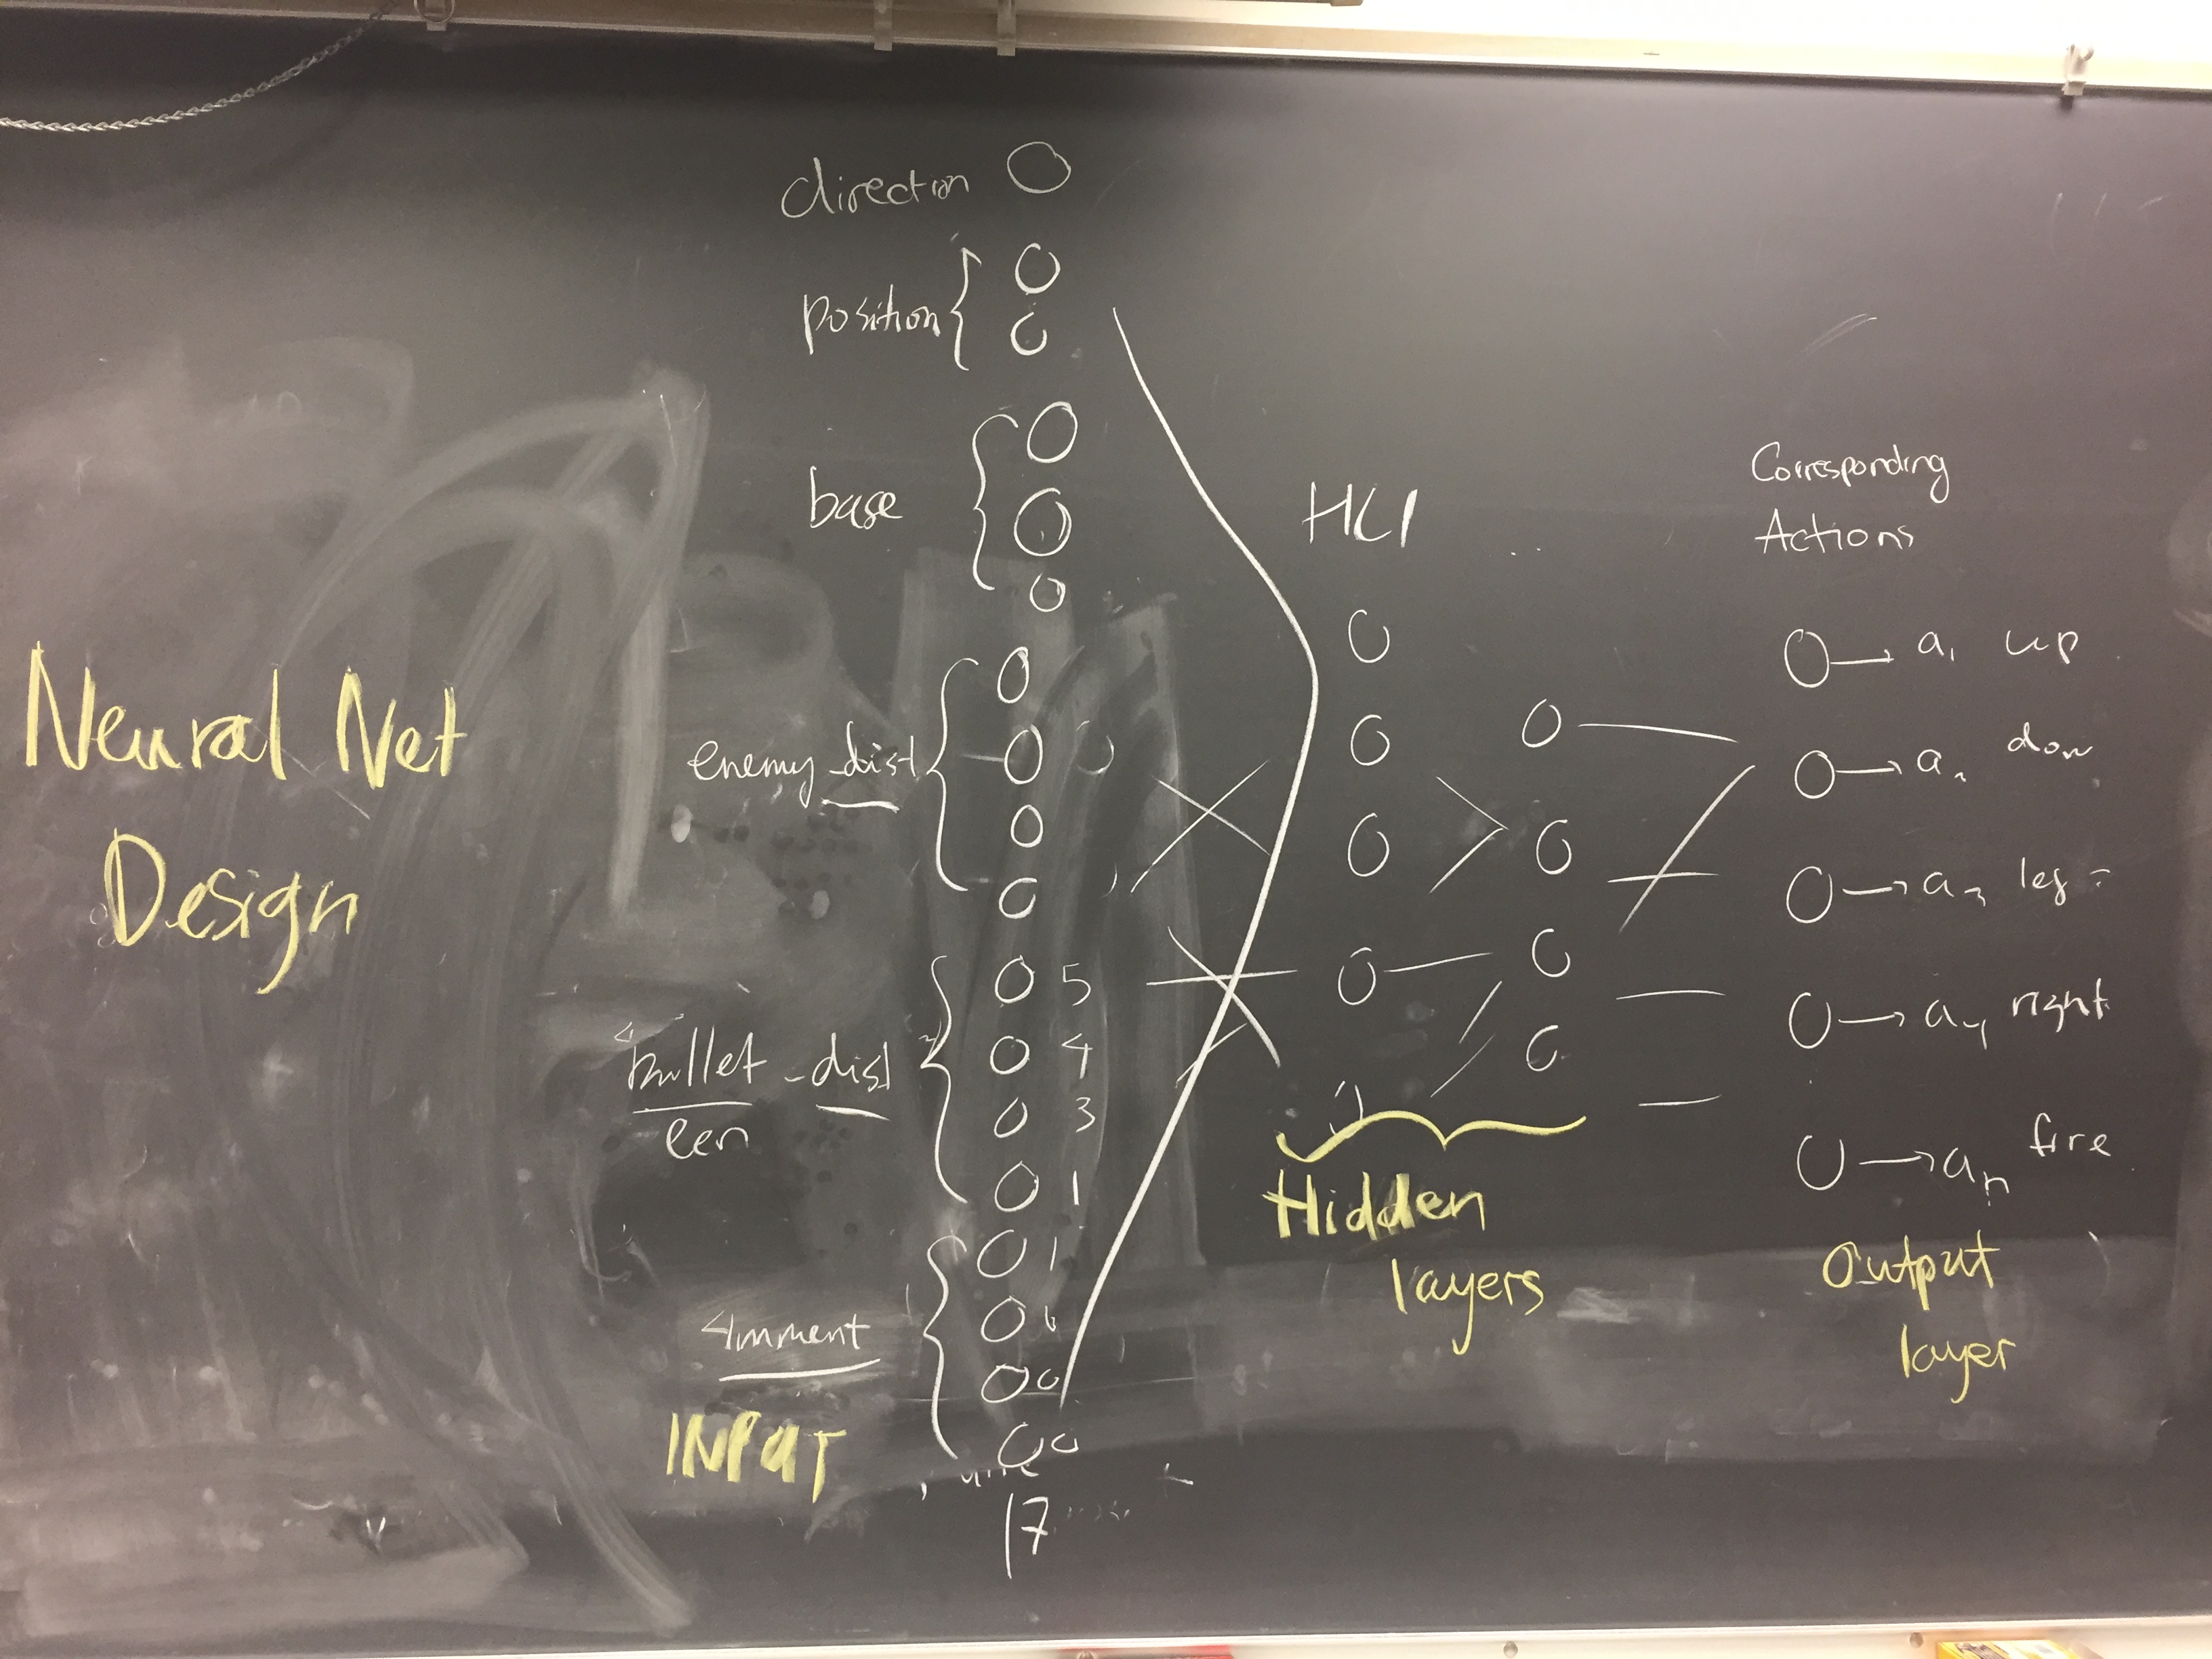 Neural Net
Design
direction
position
base
enemy_dist
bullet_dist
len
5
4
3
1
1
0
0
INPUT
17
HL1
Hidden
layers
Corresponding
Actions
a1 up
a2
a3
a4 right
an fire
Output
layer